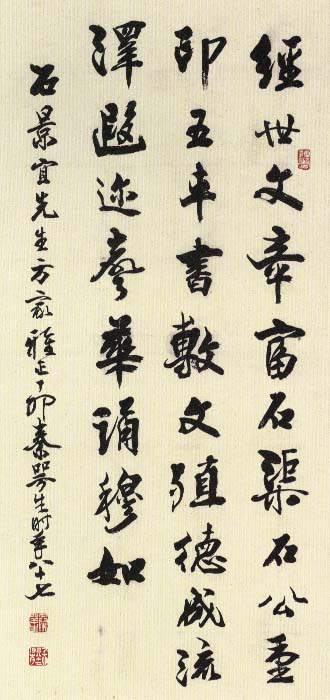 經世文章富石渠石公重
印五車書敷文殖德成流
澤遐迩聲華誦穆如
石景宜先生方家雅正丁卯秦咢生时年八十七